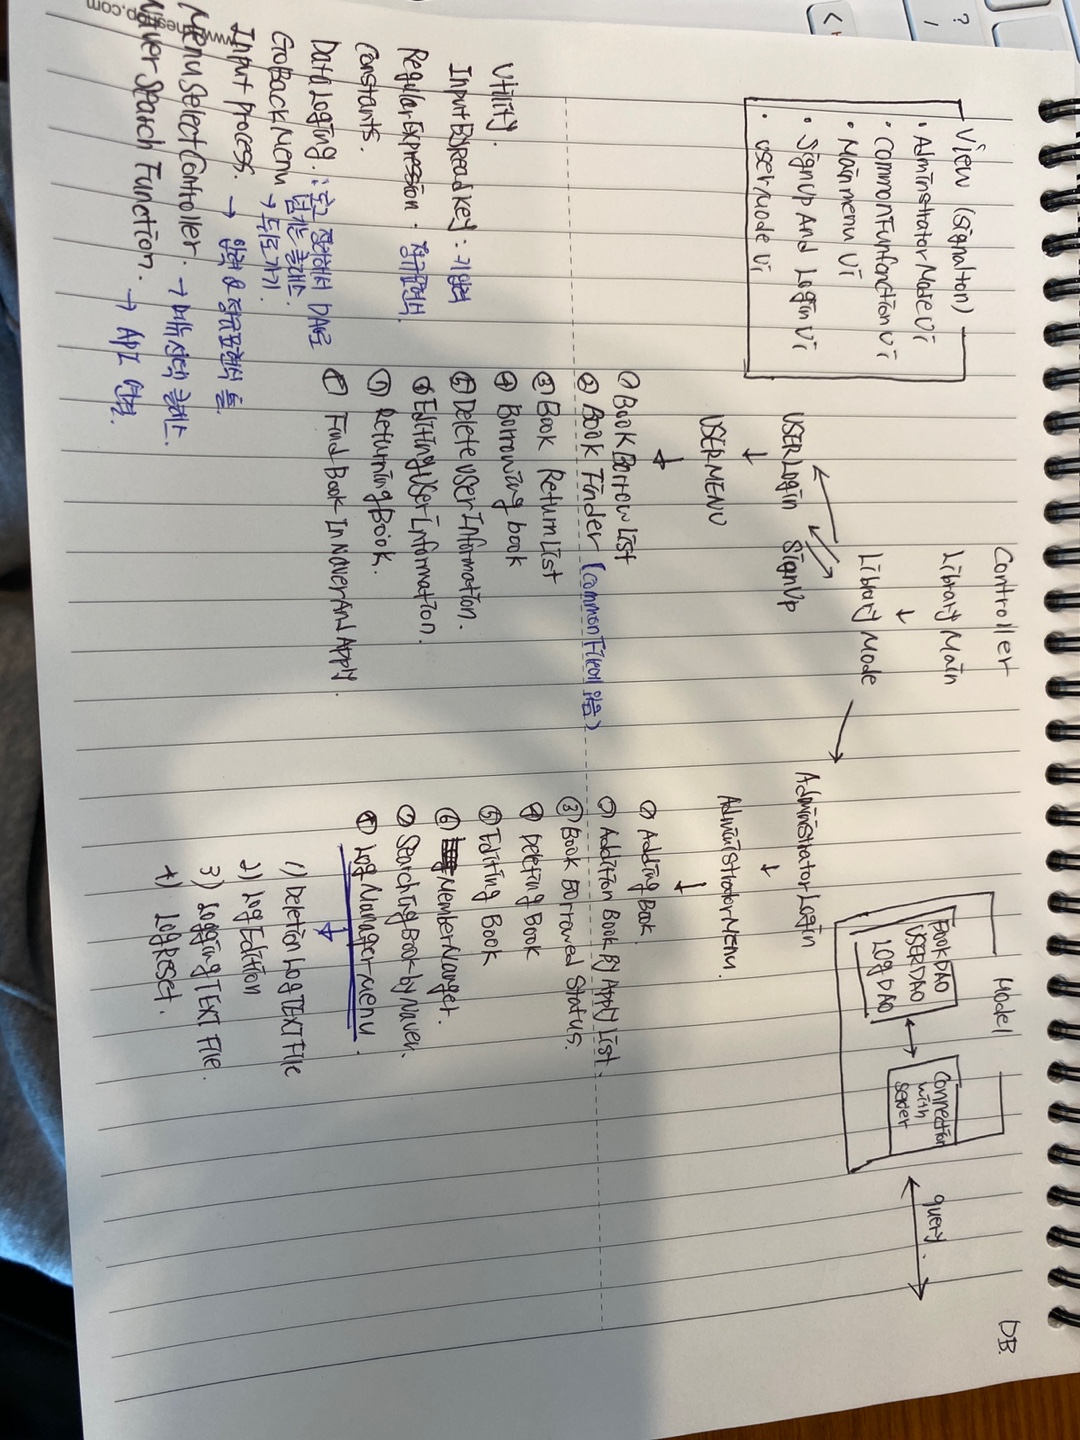 View (Signalton)
• AdminstratorModeUi
• CommonFunfonctionUi
• Mainmenu Ui
• SignUp And Login Ui
• userMode Ui
Controller
Library Main
↓
Library Mode
USERLogin SignUp
↓
USERMENU
↓
① BookBorrowList
② Book Finder (common File에 있음)
③ Book Return List
④ Borrowing book
⑤ Delete USer Information.
⑥ Editing USer Information.
⑦ Returning Book.
⑧ Find Book In Naver And Apply.
Administrator Login
↓
Administrator Menu.
↓
① Adding Book.
② Addition Book By Apply List.
③ Book Borrowed Status.
④ Deleting Book
⑤ Editing Book
⑥ Member Manger.
⑦ Searching Book by Naver.
⑧ Log Manager Menu.
↓
1) Deletion Log TEXT File
2) Log Edition
3) Logging TEXT File.
4) Log Reset.
Model
BookDAO
USERDAO
Log DAO
↔
Connection
with
server
query.
DB.
Utility.
Input By read key : 키입력
Regular Expression. 정규표현식.
Constants.
Data Loging. : 로그 DAO로
넘기는 클래스.
GoBackMenu → 뒤로가기.
Input process. → 입력 & 정규표현식
MenuSelectController. → 메뉴 선택 클래스.
Naver Search Function. → API 연결.